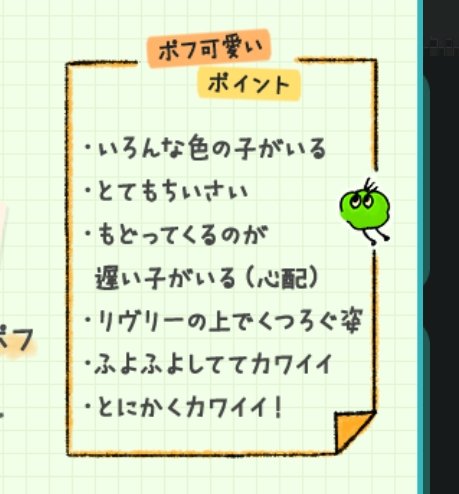 ポフ可愛い
ポイント
・いろんな色の子がいる
・とてもちいさい
・もどってくるのが
遅い子がいる（心配）
・リヴリーの上でくつろぐ姿
・ふよふよしててカワイイ
・とにかくカワイイ！
ポフ